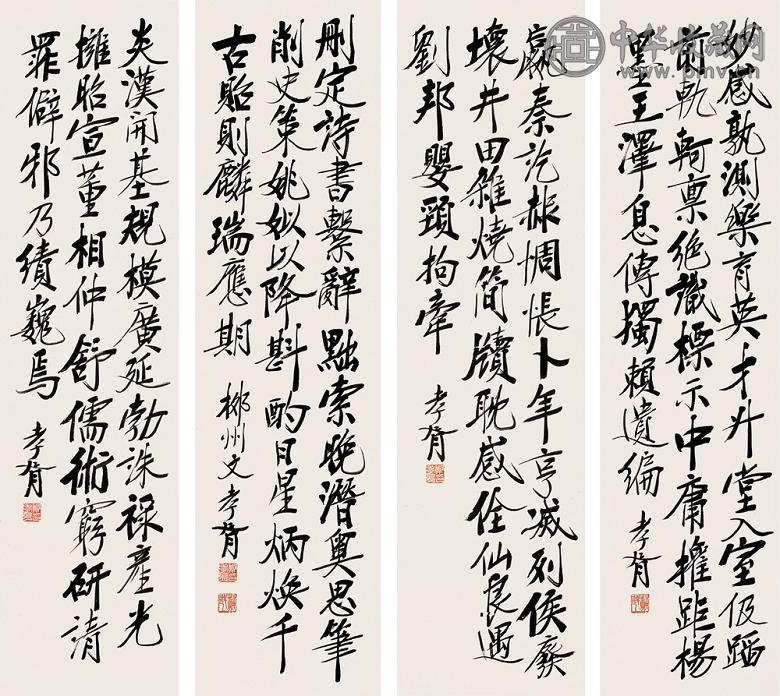 妙感孰測樂育英才升堂入室伋蹈
前軌軻稟絕識標示中庸攉距楊
墨王澤息傳獨賴遺編 孝胥
嬴秦訖赧惆悵卜年亨滅列侯廢
壞井田雜燒簡牘耽惑佺仙良遇
劉邦嬰頸拘牽 孝胥
刪定詩書繫辭黜索晚潛奧思筆
削史策姚姒以降斟酌日星炳煥千
古貽則麟瑞應期 柳州文 孝胥
炎漢開基規模廣延勃誅祿產光
擁昭宣董相仲舒儒術窮研請
罪僻邪乃績巍焉 孝胥
中华收藏网